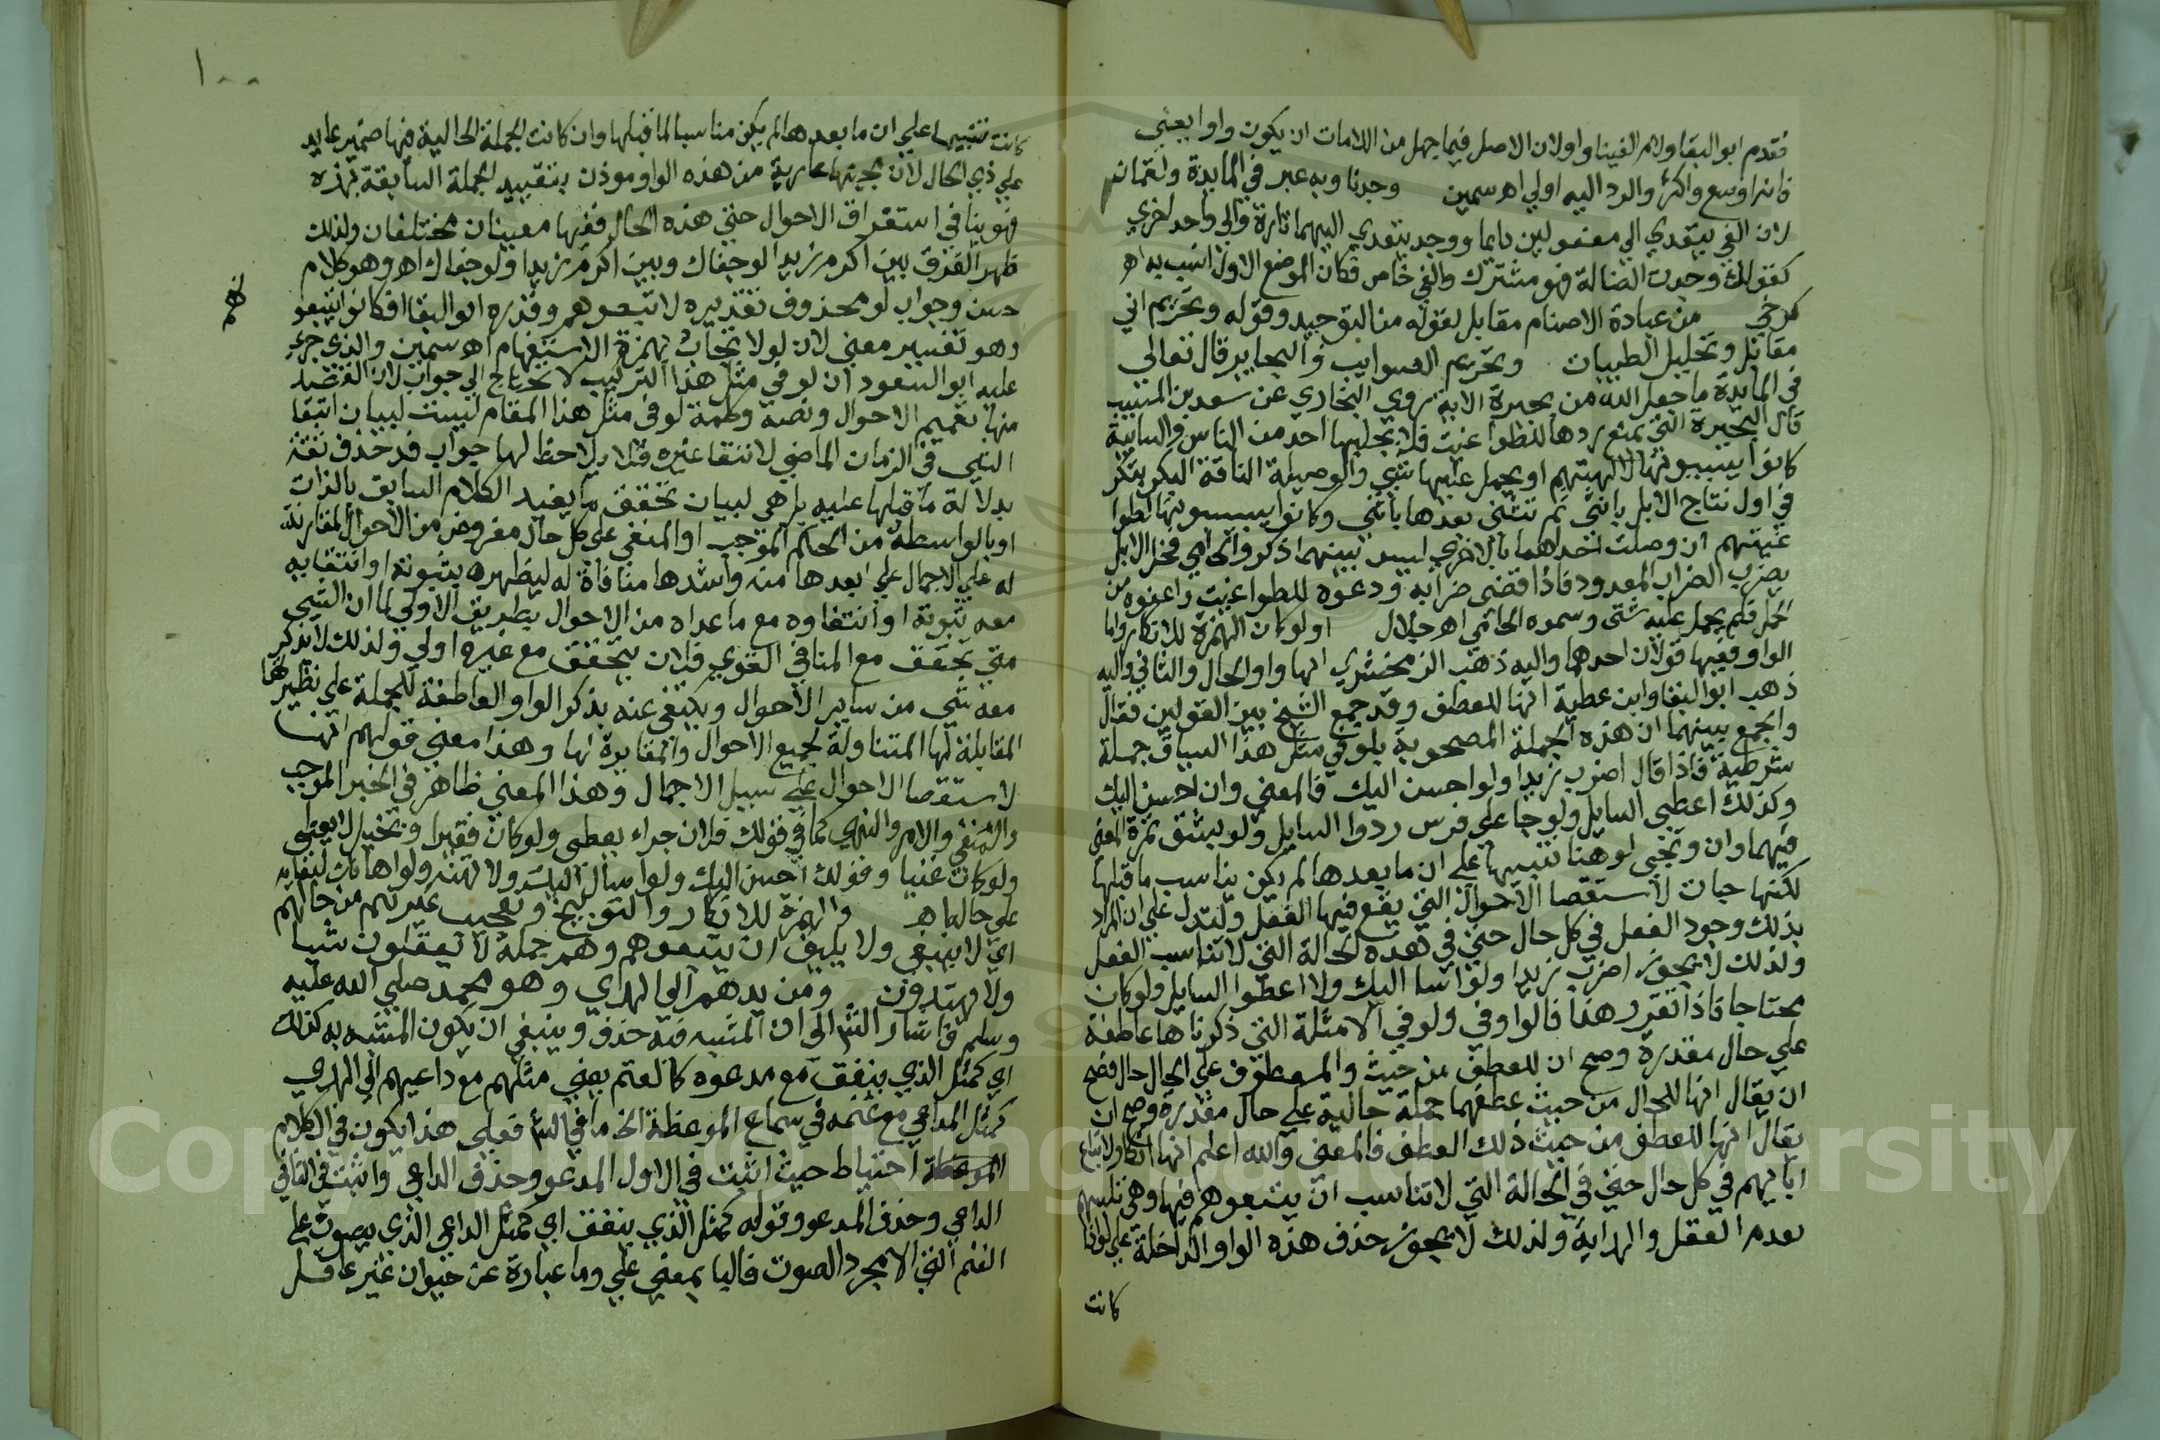 فقدم ابو البقا ولام الفينا واو لان الاصل فيما جهل من اللامات ان يكون واوا يعني
فانه اوسع واكثر والرد اليه اولي اه سمين وجدنا وبه عبر في المايدة ولقمان
لان الفي يتعدي الي مفعولين دايما ووجد يتعدي اليهما تارة والي واحد اخري
كقولك وجدت الضالة فهو مشترك والفي خاص فكان الموضع الاول انسب به اه
كرخي من عبادة الاصنام مقابل لقوله من التوحيد وقوله وتحريم اني
مقابل وتحليل الطيبات وتحريم السوايب والبحاير قال تعالي
في المايدة ما جعل الله من بحيرة الاية روي البخاري عن سعيد بن المسيب
قال البحيرة التي يمنع درها للطواغيت فلا يحلبها احد من الناس والسايبة
كانوا يسيبونها لالهتهم او يحمل عليها شي والوصيلة الناقة البكر تبكر
في اول نتاج الابل بانثي ثم تثني بعدها بانثي وكانوا يسيبونها لطوا
غيتهم ان وصلت احداهما بالاخري ليس بينهما ذكر والحامي فحل الابل
يضرب الضراب المعدود فاذا قضي ضرابه ودعوه للطواغيت واعفوه من
الحمل فلم يحمل عليه شي وسموه الحامي اه جلال اولو كان الهمزة للانكار واما
الواو ففيها قولان احدهما واليه ذهب الزمخشري انها واو الحال والثاني واليه
ذهب ابو البقا وابن عطية انها للعطف وقد جمع الشيخ بين القولين فقال
والجمع بينهما ان هذه الجملة المصحوبة بلو في مثل هذا السياق جملة
شرطية فاذا قال اضرب زيدا ولو احسن اليك فالمعني وان احسن اليك
وكذلك اعطي السايل ولو جا علي فرس ردوا السايل ولو بشق تمرة المعني
فيهما وان وتجي لو هنا تنبيها علي ان ما بعدها لم يكن يناسب ما قبلها
لكنها جات لاستقصا الاحوال التي يقع فيها الفعل ولتدل علي ان المراد
بذلك وجود الفعل في كل حال حتي في هذه الحالة التي لا تناسب الفعل
ولذلك لا يجوز اضرب زيدا ولو اسا اليك ولا اعطوا السايل ولو كان
محتاجا فاذا تقرر هذا فالواو في ولو في الامثلة التي ذكرناها عاطفة
علي حال مقدرة وصح ان للعطف من حيث والمعطوف علي الحال حال فصح
ان يقال انها للحال من حيث عطفها جملة حالية علي حال مقدرة وصح ان
يقال انها للعطف من حيث ذلك العطف فالمعني والله اعلم انها انكار لاتباع
ابايهم في كل حال حتي في الحالة التي لا تناسب ان يتبعوهم فيها وهي تلبسهم
بعدم العقل والهداية ولذلك لا يجوز حذف هذه الواو الداخلة علي لو اذا
كانت
١٠٠
كانت تنبيها علي ان ما بعدها لم يكن مناسبا لما قبلها وان كانت الجملة الحالية فيها ضمير عايد
علي ذي الحال لان مجيئها عارية من هذه الواو موذن بتقييد الجملة السابقة بهذه
فهو ينافي استغراق الاحوال حتي هذه الحال ففيها معنيان مختلفان ولذلك
ظهر الفرق بين اكرم زيدا لو جفاك وبين اكرم زيدا ولو جفاك اه وهو كلام
حسن وجواب لو محذوف تقديره لاتبعوهم وقدره ابو البقا افكانوا يتبعو
نهم
وهو تفسير معني لان لو لا تجاب بهمزة الاستفهام اه سمين والذي جري
عليه ابو السعود ان لو في مثل هذا التركيب لا تحتاج الي جواب لان القصد
منها تعميم الاحوال ونصه وكلمة لو في مثل هذا المقام ليست لبيان انتفا
الشي في الزمان الماضي لانتفا غيره فلا يلاحظ لها جواب قد حذف ثقة
بدلالة ما قبلها عليه بل هي لبيان تحقق ما يفيد الكلام السابق بالذات
او بالواسطة من الحكم الموجب او المنفي علي كل حال مفروض من الاحوال المقارنة
له علي الاجمال علي ابعدها منه واشدها منافاة له ليظهر بثبوته او انتفايه
معه ثبوته او انتفاوه مع ما عداه من الاحوال بطريق الاولي لما ان الشي
متي تحقق مع المنافي القوي فلان يتحقق مع غيره اولي ولذلك لا يذكر
معه شي من ساير الاحوال ويكتفي عنه بذكر الواو العاطفة للجملة علي نظيرتها
المقابلة لها المتناولة لجميع الاحوال والمغايرة لها وهذا معني قولهم انها
لاستقصا الاحوال علي سبيل الاجمال وهذا المعني ظاهر في الخبر الموجب
والمنفي والامر والنهي كما في قولك فلان جواد يعطي ولو كان فقيرا وبخيل لا يعطي
ولو كان غنيا وقولك احسن اليك ولو اسال اليك ولا تهنه ولو اهانك لبقايه
علي حاله اه والهمزة للانكار والتوبيخ وتعجيب غيرهم من حالهم
اي لا ينبغي ولا يليق ان يتبعوهم وهم جملة لا يعقلون شيا
ولا يهتدون ومن يدعهم الي الهدي وهو محمد صلي الله عليه
وسلم فاشار الش الي ان المشبه فيه حذف وينبغي ان يكون المشبه به كذلك
اي كمثل الذي ينعق مع مدعوه كالغنم يعني مثلهم مع داعيهم الي الهدي
كمثل الداعي مع غنمه في سماع الموعظة الخ ما في الش فعلي هذا يكون في الكلام
احتباط حيث اثبت في الاول المدعو وحذف الداعي واثبت في الثاني
الداعي وحذف المدعو وقوله كمثل الذي ينعق اي كمثل الداعي الذي يصوت علي
الغنم التي الا مجرد الصوت فالبا بمعني علي وما عبارة عن حيوان غير عاقل